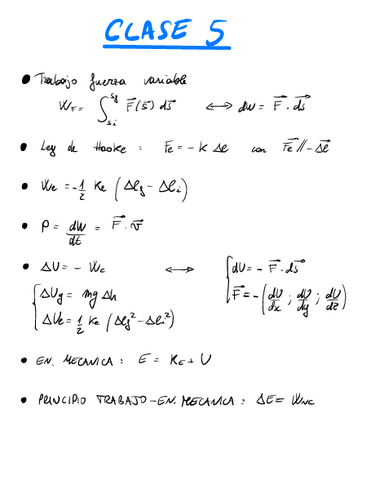 CLASE 5
• Trabajo fuerza variable
W_F = ∫_{s_i}^{s_f} F⃗(s⃗) d⃗s ⟺ dW = F⃗ · d⃗s
• Ley de Hooke : Fe = -K Δl con F⃗e // -Δ⃗l
• We = -1/2 Ke (Δl_f - Δl_i)
• P = dW/dt = F⃗ · v⃗
• ΔU = - Wc ⟷ { dU = - F⃗ · d⃗s
{ ΔUg = mg Δh F⃗ = -(dU/dx ; dU/dy ; dU/dz)
ΔUe = 1/2 Ke (Δl_f² - Δl_i²)
• EN. MECANICA : E = K_E + U
• PRINCIPIO TRABAJO-EN. MECANICA : ΔE = W_NC